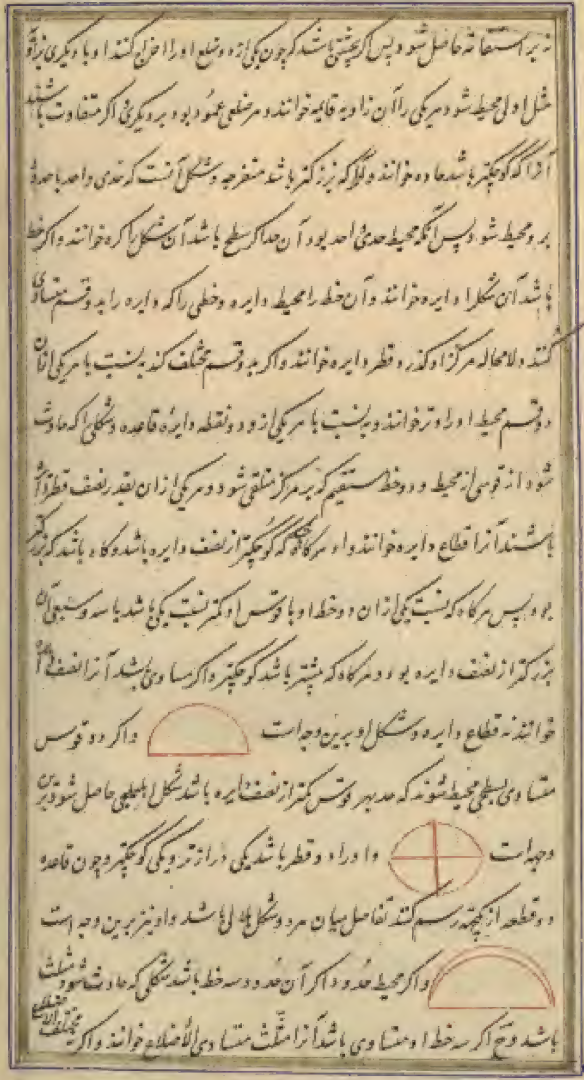 نه بر استقامة حاصل شود پس اگر بحیثی باشد که چون یکی از دو ضلع او را اخراج کنند او با دیگری زاویه
مثل اولی محیط شود هر یکی را آن زاویه قایمه خوانند و هر ضلعی عمود بود بر دیگری و اگر متفاوت باشند
آنرا که کوچکتر باشد حاده خوانند و آنرا که بزرگتر باشد منفرجه و شکل آنست که حدی واحد یا حدود
برو محیط شود پس آنکه محیط حدی واحد بود آن حد اگر سطح باشد آن شکل را کره خوانند و اگر خط
باشد آن شکل را دایره خوانند و آن خط را محیط دایره و خطی را که دایره را بدو قسم متساوی
کند و لا محاله مرکز او گذرد قطر دایره خوانند و اگر بدو قسم مختلف کند بنسبت با هر یکی از آن
دو قسم محیط او را وتر خوانند و بنسبت با هر یکی از دو قطعه دایره قاعده و شکلی را که حادث
شود از قوسی از محیط و دو خط مستقیم که بر مرکز ملتقی شود و هر یکی از آن بقدر نصف قطر دایره
باشند آنرا قطاع دایره خوانند و او هر گاه کوچکتر از نصف دایره باشد و گاه باشد که بزرگتر
بود پس هر گاه که نسبت یکی از آن دو خط او با قوس او کمتر نسبت یکی باشد با سه و سبعی آن
بزرگتر از نصف دایره بود و هر گاه که بیشتر باشد کوچکتر و اگر مساوی باشد آنرا نصف دایره
خوانند نه قطاع دایره و شکل او برین وجه است و اگر دو قوس
متساوی بسطحی محیط شوند که هر قوس کمتر از نصف دایره باشد شکل اهلیلجی حاصل شود برین
وجه است و او را دو قطر باشد یکی درازتر و یکی کوچکتر و چون قاعده
دو قطعه از یکجهة رسم کنند تفاصل میان هر دو شکل هلالی باشد و او نیز برین وجه است
و اگر محیط حدود اگر آن حدود سه خط باشد شکلی که حادث شود مثلث
باشد و ح اگر سه خط او متساوی باشد آنرا مثلث متساوی الاضلاع خوانند و اگر مختلف الاضلاع